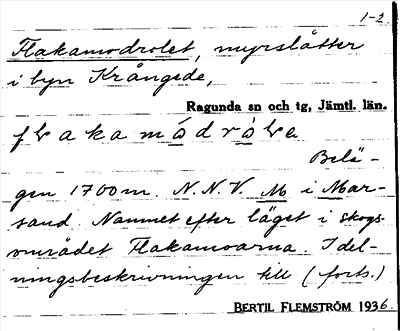 1-2.
Flakamodrolet, myrslåtter
i byn Krångede,
Ragunda sn och tg, Jämtl. län.
Belä-
gen 1700m. N.N.V. M i Mar-
sand. Namnet efter läget i skogs
området Flakamoarna. I del-
ningsbeskrivningen till (forts.)
BERTIL FLEMSTRÖM 1936.